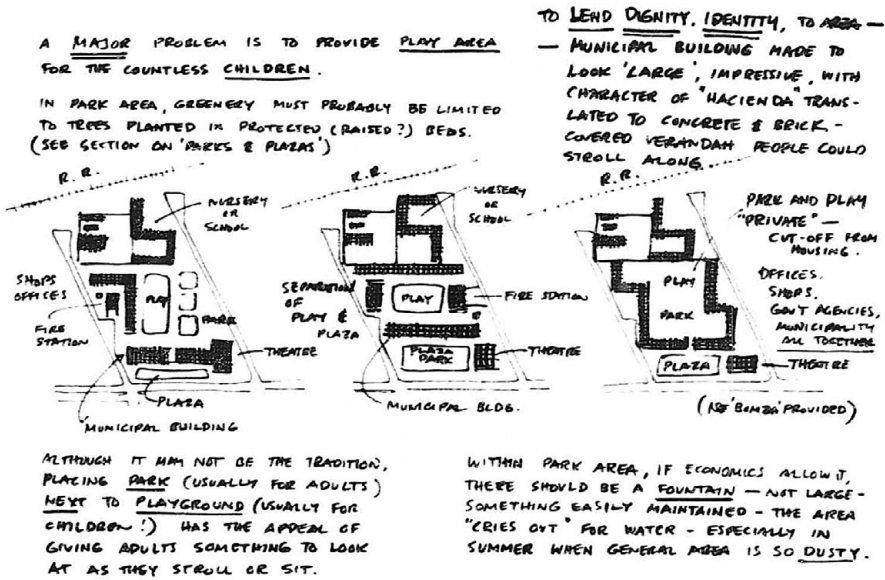 A MAJOR PROBLEM IS TO PROVIDE PLAY AREA
FOR THE COUNTLESS CHILDREN.
IN PARK AREA, GREENERY MUST PROBABLY BE LIMITED
TO TREES PLANTED IN PROTECTED (RAISED?) BEDS.
(SEE SECTION ON 'PARKS & PLAZAS')
TO LEND DIGNITY, IDENTITY, TO AREA —
— MUNICIPAL BUILDING MADE TO
LOOK 'LARGE', IMPRESSIVE, WITH
CHARACTER OF "HACIENDA" TRANS-
LATED TO CONCRETE & BRICK -
COVERED VERANDAH PEOPLE COULD
STROLL ALONG.
R.R.
NURSERY
OR
SCHOOL
SHOPS
OFFICES
PLAY
PARK
FIRE
STATION
THEATRE
PLAZA
MUNICIPAL BUILDING
R.R.
NURSERY
OR
SCHOOL
SEPARATION
OF
PLAY &
PLAZA
PLAY
FIRE STATION
PLAZA
PARK
THEATRE
MUNICIPAL BLDG.
R.R.
PARK AND PLAY
"PRIVATE" —
CUT-OFF FROM
HOUSING.
PLAY
PARK
OFFICES.
SHOPS.
GOV'T AGENCIES,
MUNICIPALITY
ALL TOGETHER
PLAZA
THEATRE
(NE 'BOMBA' PROVIDED)
ALTHOUGH IT MAY NOT BE THE TRADITION,
PLACING PARK (USUALLY FOR ADULTS)
NEXT TO PLAYGROUND (USUALLY FOR
CHILDREN!) HAS THE APPEAL OF
GIVING ADULTS SOMETHING TO LOOK
AT AS THEY STROLL OR SIT.
WITHIN PARK AREA, IF ECONOMICS ALLOW IT,
THERE SHOULD BE A FOUNTAIN — NOT LARGE -
SOMETHING EASILY MAINTAINED - THE AREA
"CRIES OUT" FOR WATER - ESPECIALLY IN
SUMMER WHEN GENERAL AREA IS SO DUSTY.